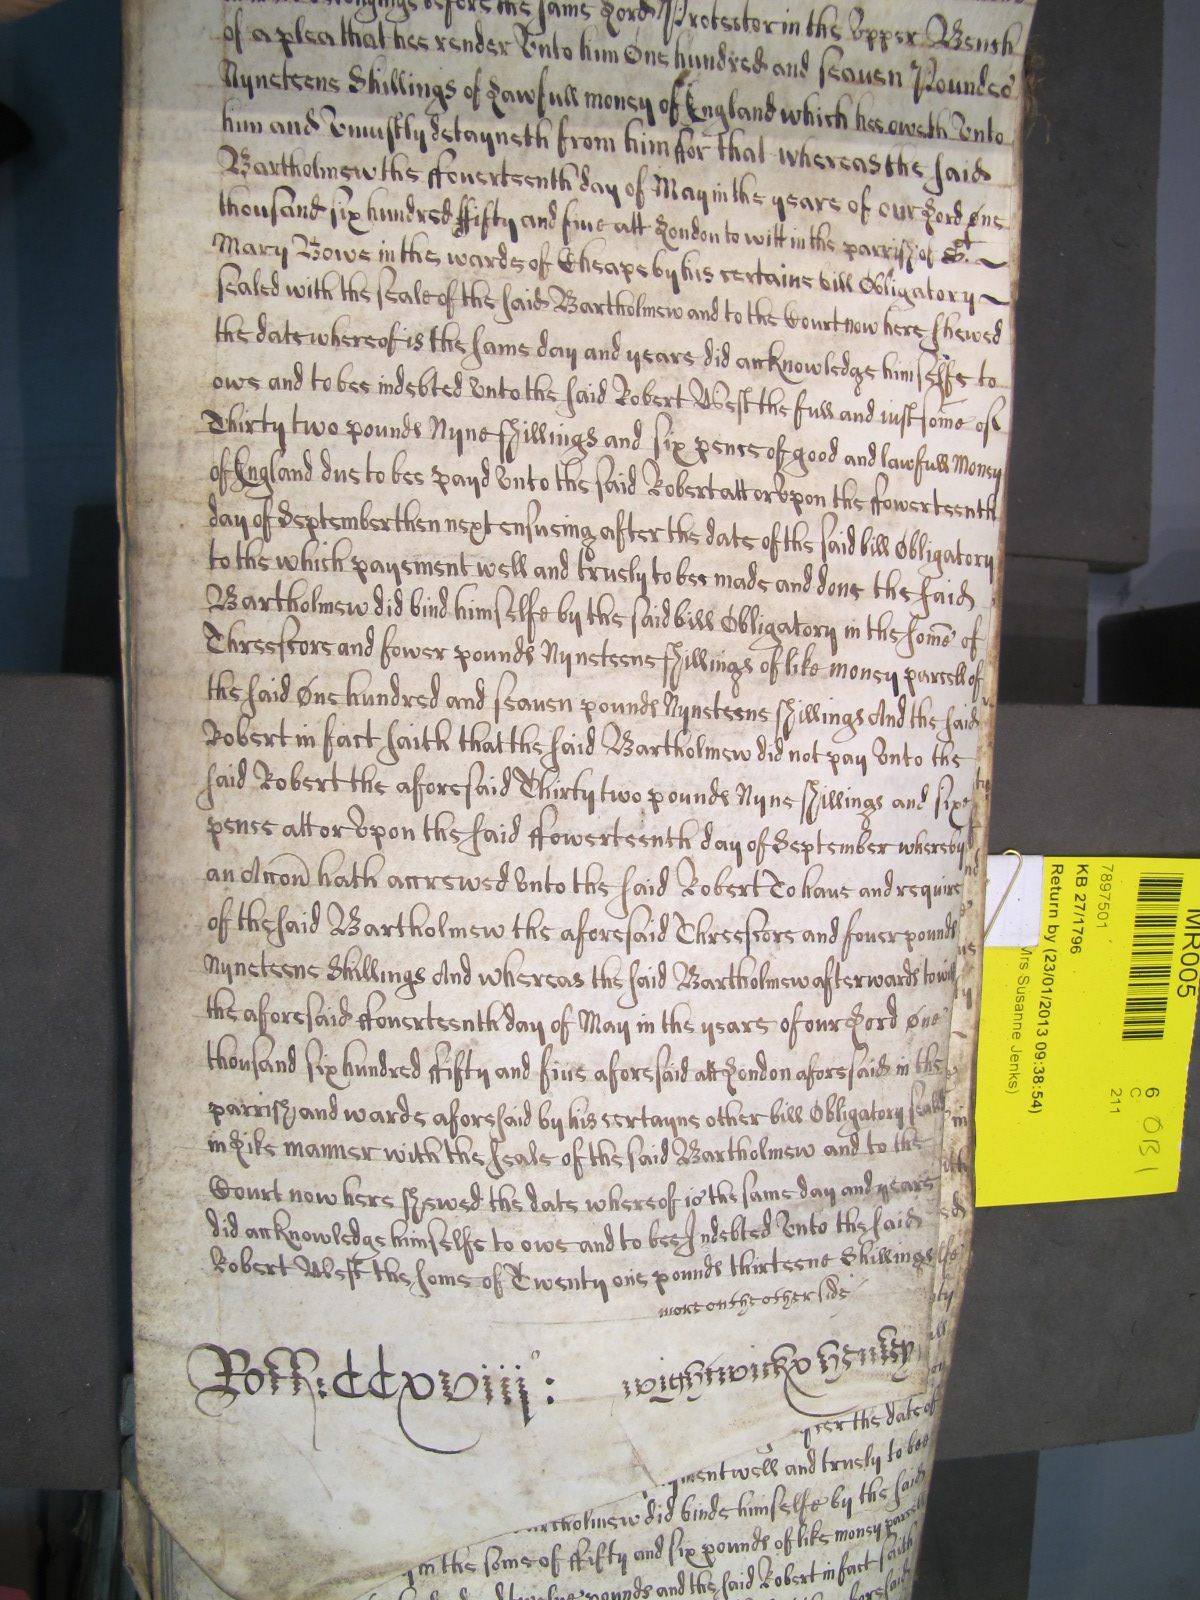 belongings before the same Lord Protector in the Upper Bench
of a plea that hee render Unto him One hundred and seaven Pounds
Nyneteene Shillings of Lawfull money of England which hee oweth Unto
him and Uniustly detayneth from him ffor that whereas the said
Bartholmew the ffowerteenth day of May in the yeare of our Lord One
thousand six hundred ffifty and five att London to witt in the parrish of St.
Mary Bowe in the warde of Cheape by his certaine bill Obligatory
sealed with the seale of the said Bartholmew and to the Court now here shewed
the date whereof is the same day and yeare did acknowledge himselfe to
owe and to bee indebted Unto the said Robert West the full and iust some of
Thirty two pounds Nyne shillings and six pence of good and lawfull Money
of England due to bee payd Unto the said Robert att or Upon the ffowerteenth
day of September then next ensueing after the date of the said bill Obligatory
to the which payement well and truely to bee made and done the said
Bartholmew did bind himselfe by the said bill Obligatory in the some of
Threescore and fower pounds Nyneteene shillings of like money parcell of
the said One hundred and seaven pounds Nyneteene shillings And the said
Robert in fact saith that the said Bartholmew did not pay Unto the
said Robert the aforesaid Thirty two pounds Nyne shillings and sixe
pence att or Upon the said ffowerteenth day of September whereby
an Accon hath accrewed Unto the said Robert To have and require
of the said Bartholmew the aforesaid Threescore and fower pounds
Nyneteene Shillings And whereas the said Bartholmew afterwards to witt
the aforesaid ffowerteenth day of May in the yeare of our Lord One
thousand six hundred ffifty and five aforesaid att London aforesaid in the
parrish and warde aforesaid by his certayne other bill Obligatory seald
in Like manner with the seale of the said Bartholmew and to the
Court now here shewed the date whereof is the same day and yeare
did acknowledge himselfe to owe and to bee Indebted Unto the said
Robert West the some of Twenty one pounds thirteene Shillings
more on the other side
Rott: CCxviiij°: wightwick x hensley
the date of
ment well and truely to bee
did binde himselfe by the said
in the some of ffifty and six pounds of like money parcell
pounds and the said Robert in fact saith
MR005
7897501
KB 27/1796
Return by (23/01/2013 09:38:54)
Mrs Susanne Jenks)
6
C
211
OB1